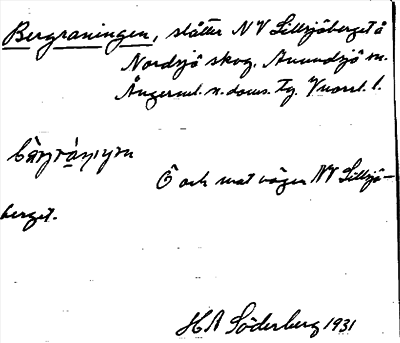 Bergraningen, slåtter NV Lillsjöberget å
Nordsjö skog. Anundsjö sn.
Ångerml. n. doms. Tg. Vuorel.
Ö och mot vägen NV Lillsjö-
berget.
H A Söderberg 1931